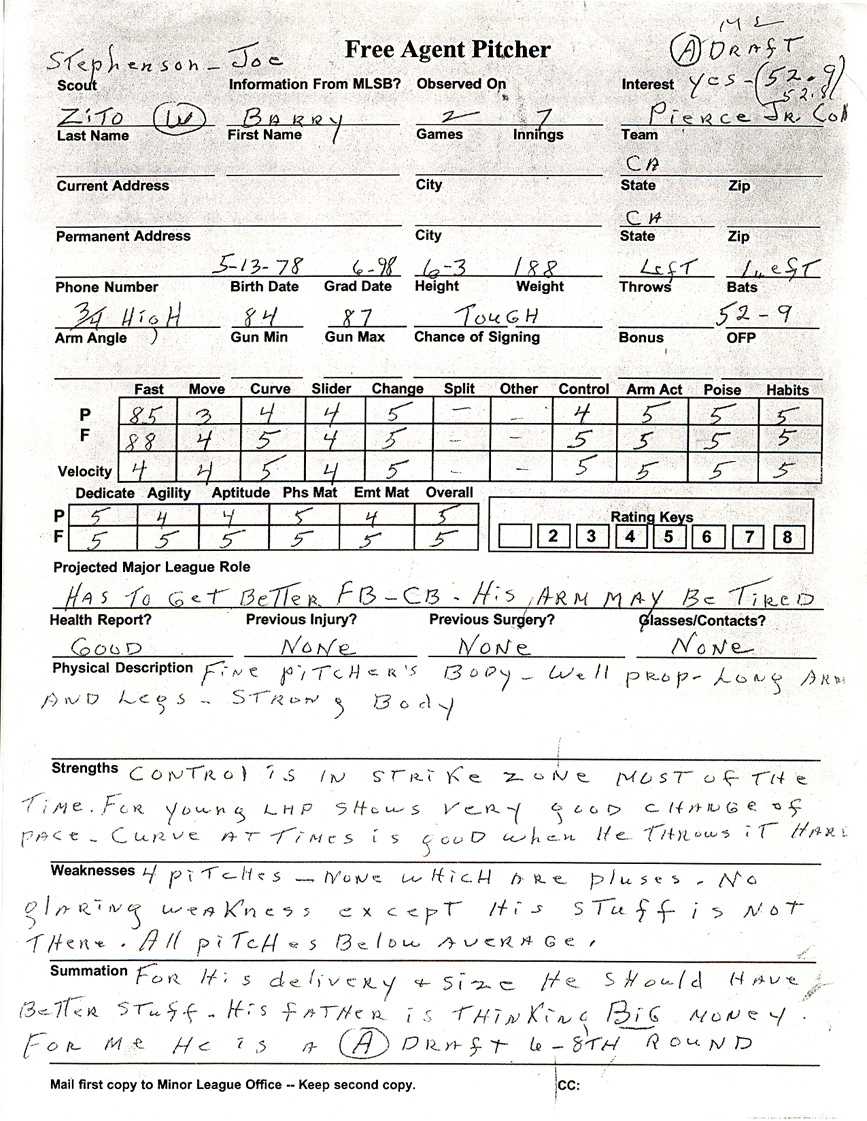 MS
Stephenson - Joe Free Agent Pitcher (A) DRAFT
Scout Information From MLSB? Observed On Interest yes - (52.9
52.8
ZITO (W) BARRY 2 7 Pierce Jr. Coll
Last Name First Name Games Innings Team
CA
Current Address City State Zip
CA
Permanent Address City State Zip
5-13-78 6-98 6-3 188 Left Left
Phone Number Birth Date Grad Date Height Weight Throws Bats
3/4 HigH 84 87 TougH 52-9
Arm Angle Gun Min Gun Max Chance of Signing Bonus OFP
Fast Move Curve Slider Change Split Other Control Arm Act Poise Habits
P 85 3 4 4 5 — — 4 5 5 5
F 88 4 5 4 5 — — 5 5 5 5
Velocity 4 4 5 4 5 — — 5 5 5 5
Dedicate Agility Aptitude Phs Mat Emt Mat Overall
P 5 4 4 5 4 5 Rating Keys
F 5 5 5 5 5 5 2 3 4 5 6 7 8
Projected Major League Role
HAS To Get BeTTer FB-CB. His ARM MAY Be TireD
Health Report? Previous Injury? Previous Surgery? Glasses/Contacts?
GOOD NONe NONe NONe
Physical Description Fine piTcHer's BODY - Well prop - Long ARM
AND Legs - STRONg Body
Strengths CONTROl is IN STRiKe zoNe MOST OF THe
Time. For young LHP SHows very good cHANge of
pAce - Curve AT Times is good when He THRows iT HARD
Weaknesses 4 piTcHes — None wHicH Are pluses. No
glARiNg weAKness except His STuff is NoT
THere. All piTcHes Below Average.
Summation For His delivery + Size He SHould HAve
BeTTer STuff. His fATHer is THiNKiNg BiG MONey.
For Me He is A (A) DRAFT 6-8TH ROUND
Mail first copy to Minor League Office -- Keep second copy. CC: